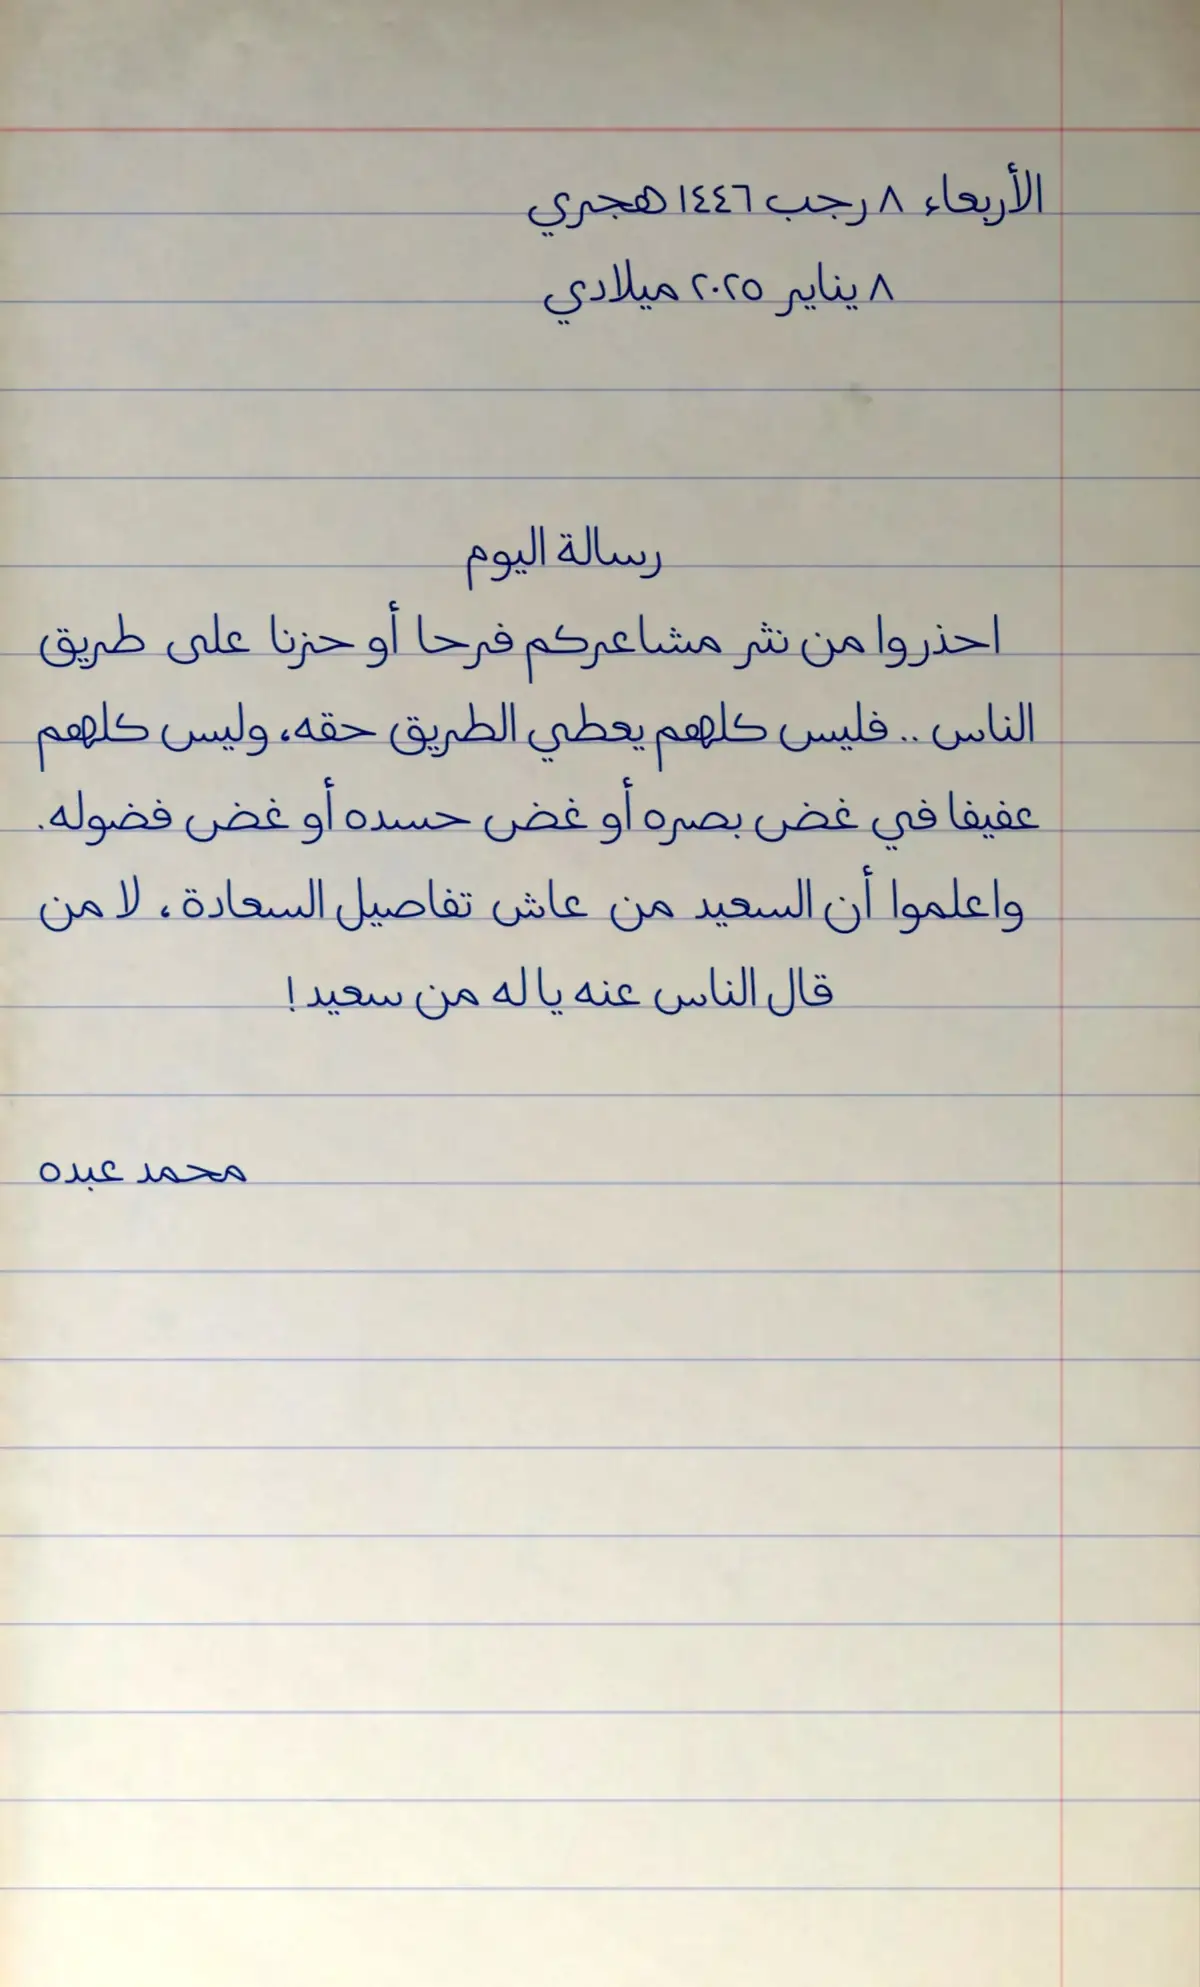 الأربعاء ٨ رجب ١٤٤٦ هجري
٨ يناير ٢٠٢٥ ميلادي
رسالة اليوم
احذروا من نثر مشاعركم فرحا أو حزنا على طريق
الناس .. فليس كلهم يعطي الطريق حقه، وليس كلهم
عفيفا في غض بصره أو غض حسده أو غض فضوله.
واعلموا أن السعيد من عاش تفاصيل السعادة، لا من
قال الناس عنه يا له من سعيد!
محمد عبده